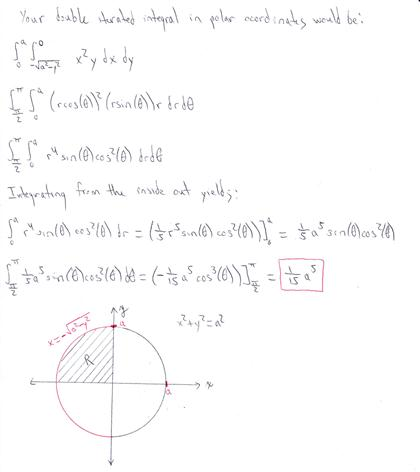 Your double iterated integral in polar coordinates would be:
∫₀ᵃ ∫_{-√(a²-y²)}⁰ x²y dx dy
∫_{π/2}^{π} ∫₀ᵃ (rcos(θ))² (rsin(θ)) r drdθ
∫_{π/2}^{π} ∫₀ᵃ r⁴ sin(θ)cos²(θ) drdθ
Integrating from the inside out yields:
∫₀ᵃ r⁴ sin(θ) cos²(θ) dr = (1/5 r⁵ sin(θ) cos²(θ))]₀ᵃ = 1/5 a⁵ sin(θ)cos²(θ)
∫_{π/2}^{π} 1/5 a⁵ sin(θ)cos²(θ) dθ = (-1/15 a⁵ cos³(θ))]_{π/2}^{π} = 1/15 a⁵
y
x=-√(a²-y²)
a
x²+y²=a²
R
x
a